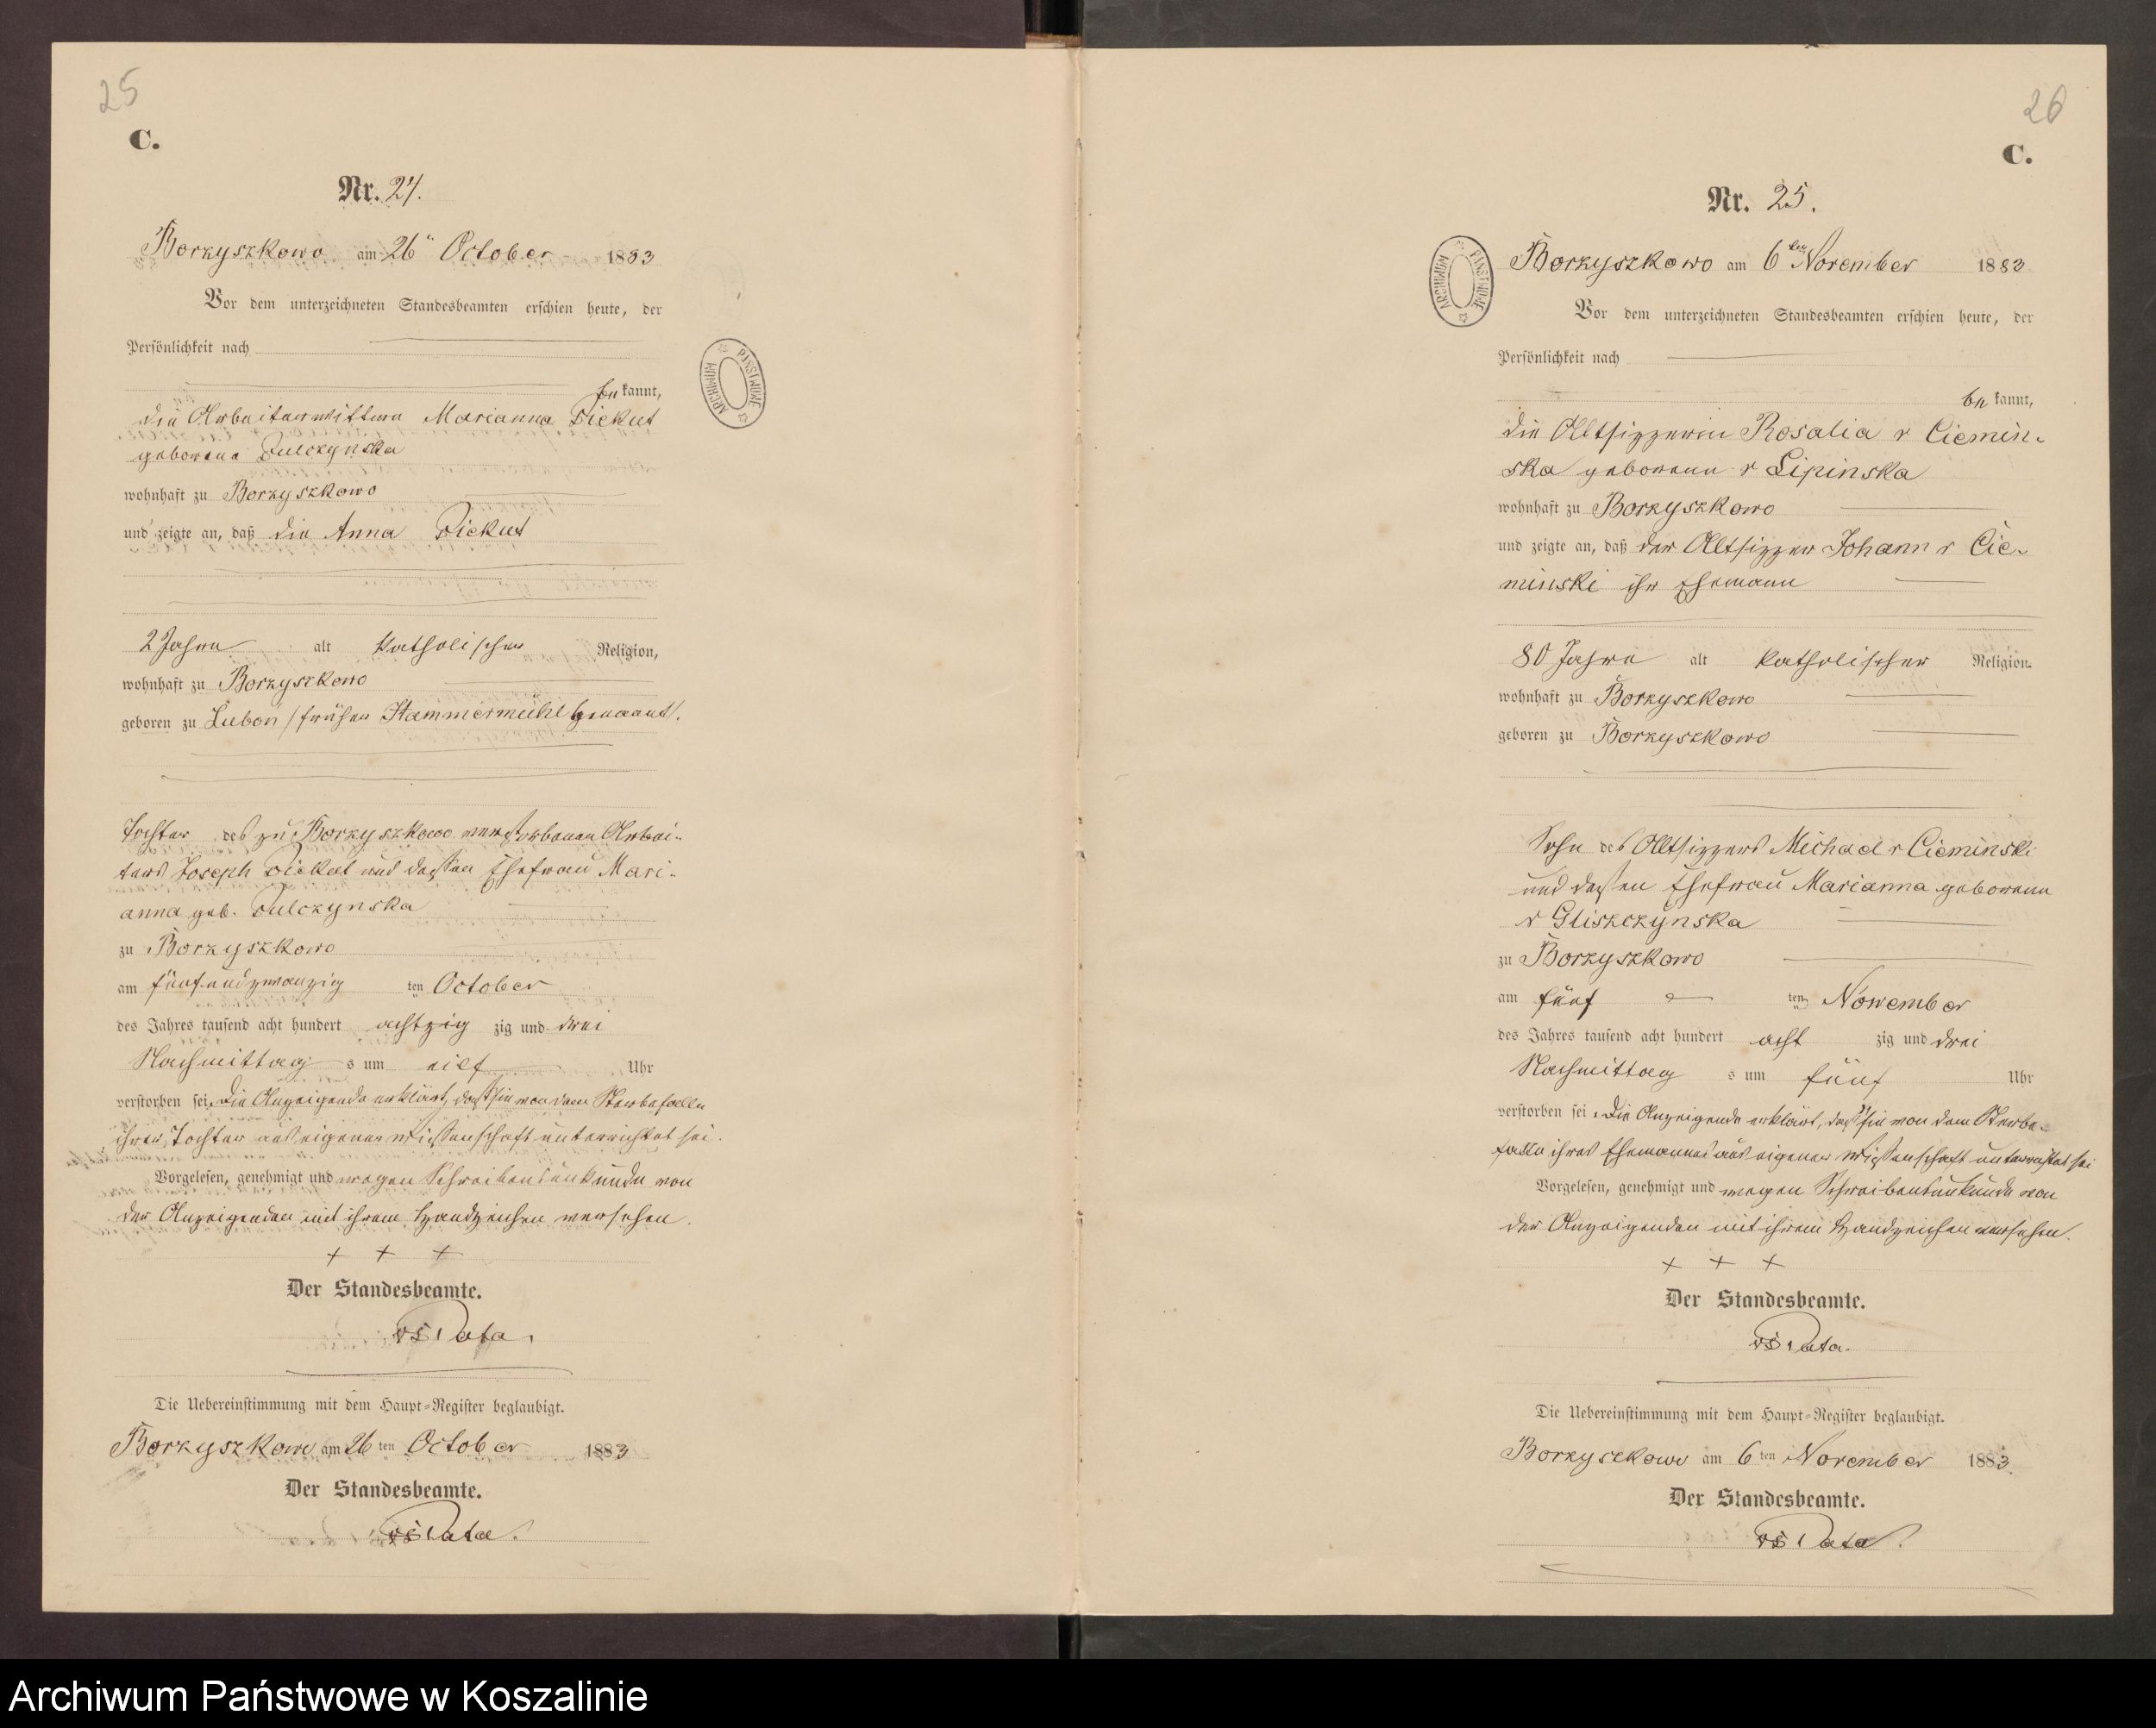 25
C.
Nr. 24.
Borzyszkowo am 26ⁿ October 1883
Vor dem unterzeichneten Standesbeamten erschien heute, der
Persönlichkeit nach
bekannt,
die Arbeiterwittwe Marianna Dickut
geborene Dulczynska
wohnhaft zu Borzyszkowo
und zeigte an, daß die Anna Dickut
2 Jahre alt katholischer Religion,
wohnhaft zu Borzyszkowo
geboren zu Lubon /früher Hammermühl genannt/.
Tochter des zu Borzyszkowo verstorbenen Arbei-
ters Joseph Dickut und dessen Ehefrau Mari-
anna geb. Dulczynska
zu Borzyszkowo
am fünfundzwanzig ten October
des Jahres tausend acht hundert achtzig zig und drei
Nachmittag s um eilf Uhr
verstorben sei. Die Anzeigende erklärt, daß sie von dem Sterbefalle
ihrer Tochter aus eigener Wissenschaft unterrichtet sei.
Vorgelesen, genehmigt und wegen Schreibensunkunde von
der Anzeigenden mit ihrem Handzeichen versehen.
+ + +
Der Standesbeamte.
Die Uebereinstimmung mit dem Haupt-Register beglaubigt.
Borzyszkowo am 26 ten October 1883
Der Standesbeamte.
26
C.
Nr. 25.
Borzyszkowo am 6ten November 1883
Vor dem unterzeichneten Standesbeamten erschien heute, der
Persönlichkeit nach
bekannt,
die Altsitzerin Rosalia v Ciemin-
ska geborene v Lipinska
wohnhaft zu Borzyszkowo
und zeigte an, daß der Altsitzer Johann v Cie-
minski ihr Ehemann
80 Jahre alt katholischer Religion
wohnhaft zu Borzyszkowo
geboren zu Borzyszkowo
Sohn des Altsitzers Michael v Cieminski
und dessen Ehefrau Marianna geborene
v Gliszczynska
zu Borzyszkowo
am fünf ten November
des Jahres tausend acht hundert acht zig und drei
Nachmittag s um fünf Uhr
verstorben sei. Die Anzeigende erklärt, daß sie von dem Sterbe-
falle ihres Ehemannes aus eigener Wissenschaft unterrichtet sei
Vorgelesen, genehmigt und wegen Schreibensunkunde von
der Anzeigenden mit ihrem Handzeichen versehen.
+ + +
Der Standesbeamte.
Die Uebereinstimmung mit dem Haupt-Register beglaubigt.
Borzyszkowo am 6 ten November 1883.
Der Standesbeamte.
ARCHIWUM PAŃSTWOWE
ARCHIWUM PAŃSTWOWE
Archiwum Państwowe w Koszalinie